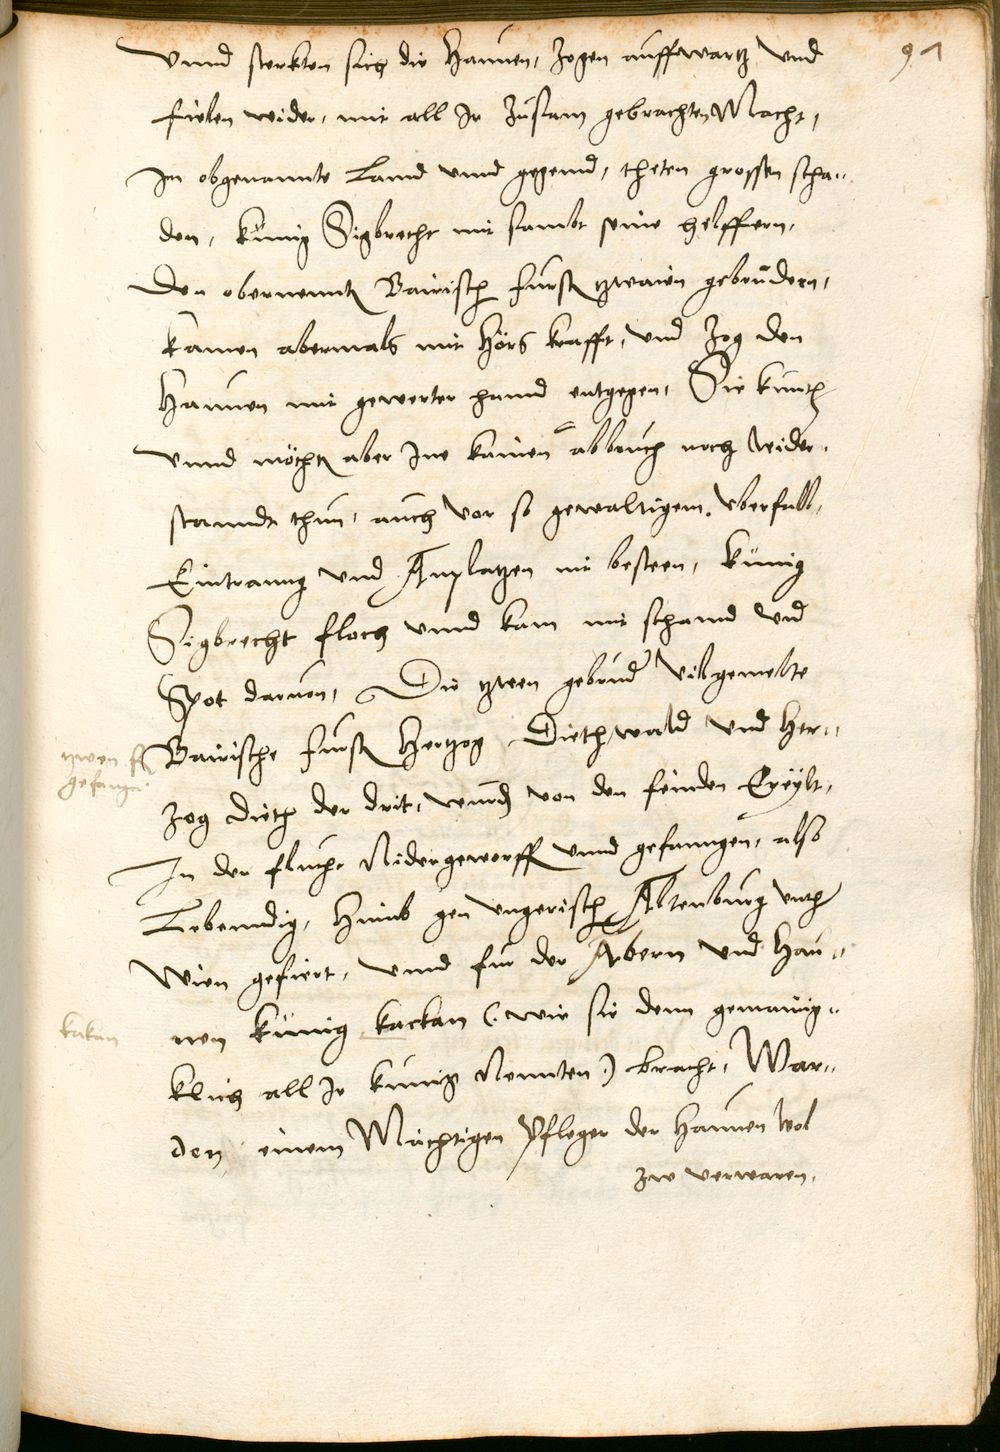 91
Vnnd sterkten sich die Haunen, zogen auffwartz vnd
fielen wider, mit all Ir zusam gebrachten Macht,
In obgenannte Lannd vnnd gegennd, theten grossen scha„
den, künig Sigbrecht mit sambt seine helffern,
den obernennt Bairisch fürst zwaien gebrüdern,
kamen abermals mit Hörs krafft, vnd zog den
Haunen mit gewerter hannd entgegen, Sie kunth
vnnd möcht aber Ine kainen abbruch noch wider„
stanndt thun, auch vor so gewaltigem vberfall,
Eintranng vnd Anplatzen nit besteen, künig
Sigbrecht floch vnnd kam mit schannd vnd
Spot daruon, Die zween gebrud vilgemelte
Bairische fürst Hertzog Diethwald vnd Her„
zog Dieth der drit, wurd von den feinden Ereylt,
In der flucht Nidergeworff vnnd gefanngen, also
Lebenndig, Hinab gen vngerisch Altenburg vnth
Wien gefiert, vnnd fur der Abern vnd Hau„
nen künig kackan (: wie sie denn gemainig„
klich all Ir künig Nennten :) bracht, War„
den einem Mächtigen Pfleger der Haunen wol
zw verwaren,
zwen ff
gefangen
kakan